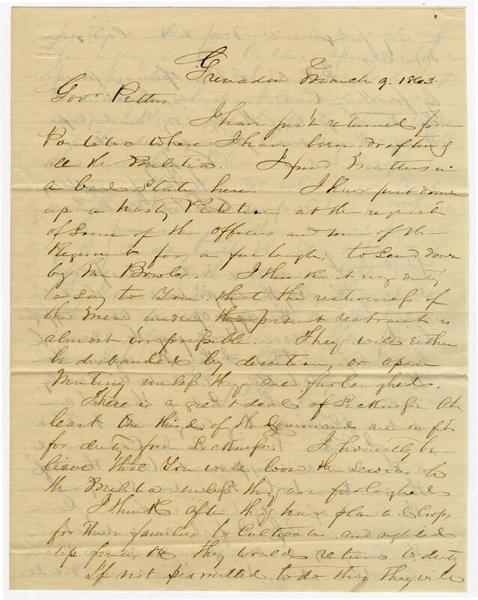 Grenada March 9. 1863
Gov. Pettus
I have just returned from
Pontotoc where I have been drafting
all the Militia. I find matters in
a bad state here. I have just drawn
up a hasty Petition at the request
of some of the officers and men of the
Regiment for a furlough, to send down
by Mr Bowles. I think it my duty
to say to You that the restiveness of
the men under the present restraint is
almost irrepressible. They will either
be disbanded by desertion or open
Mutiny unless they are furloughed.
There is a great deal of Sickness At
least One third of the Command are unfit
for duty from Sickness. I honestly be
lieve that You will loose the services of
the Militia unless they are furloughed
I think after they have planted Crops
for their families to Cultivate and righted
up fences &c they would return to duty
If not permitted to do this they will